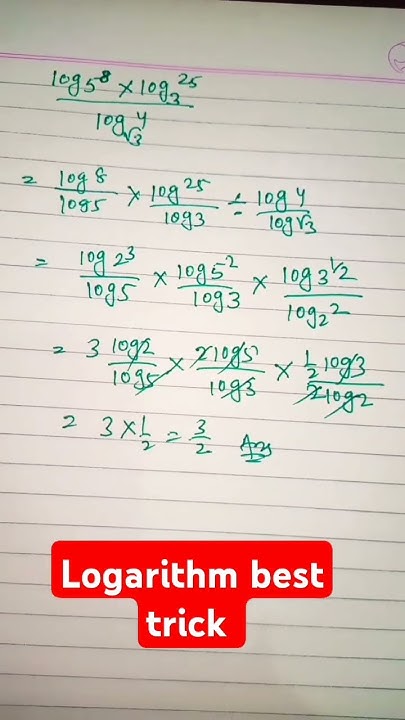 log5^8 × log_3^25
log_√3^4
= log 8 / log 5 × log 25 / log 3 ÷ log 4 / log √3
= log 2^3 / log 5 × log 5^2 / log 3 × log 3^1/2 / log_2 2
= 3 log 2 / log 5 × 2 log 5 / log 3 × 1/2 log 3 / 2 log 2
= 3 × 1/2 = 3/2 Ans
Logarithm best
trick